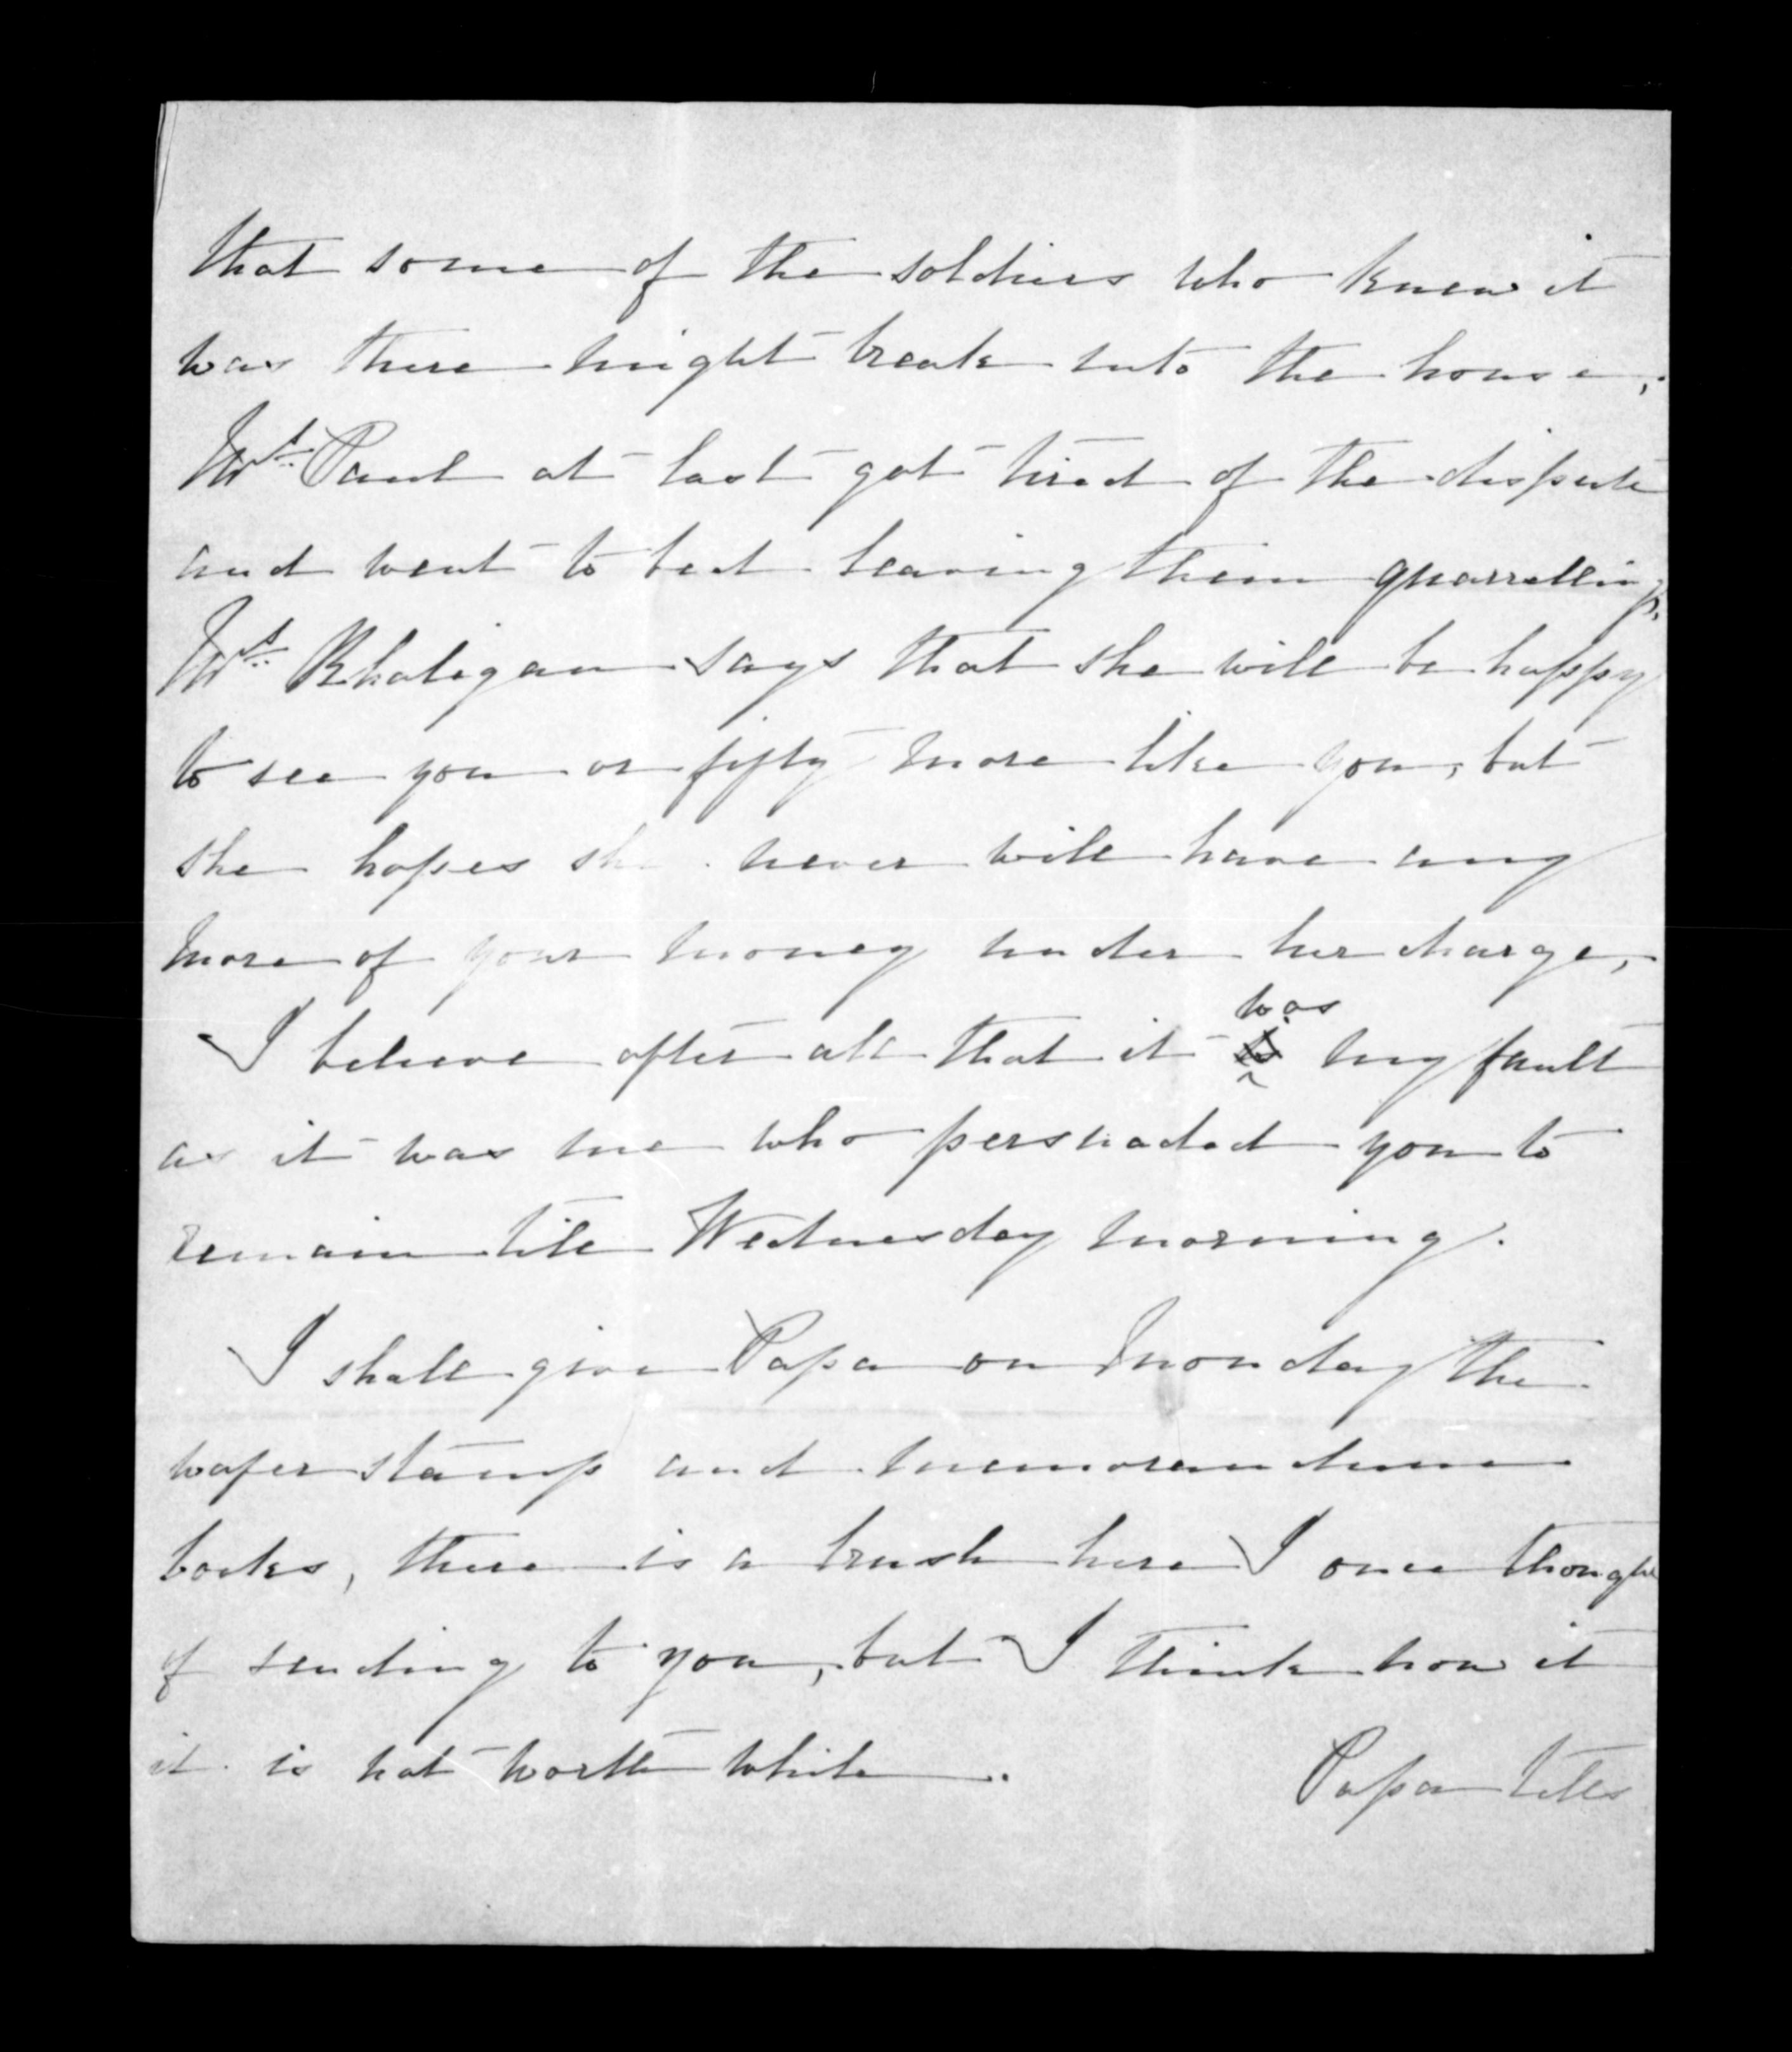 that some of the soldiers who knew it
was there might break into the house,
Mrs. Paul at last got tired of the dispute
and went to bed leaving them quarrelling,
Mrs. Rhatigan says that she will be happy
to see you or fifty more like you, but
she hopes she never will have any
more of your money under her charge,
was
I believe after all that it is my fault
as it was me who persuaded you to
remain till Wednesday morning.
I shall give Papa on Monday the
wafer stamp and memorandum
books, there is a brush here I once thought
of sending to you, but I think now it
it is not worth while.
Papa tells